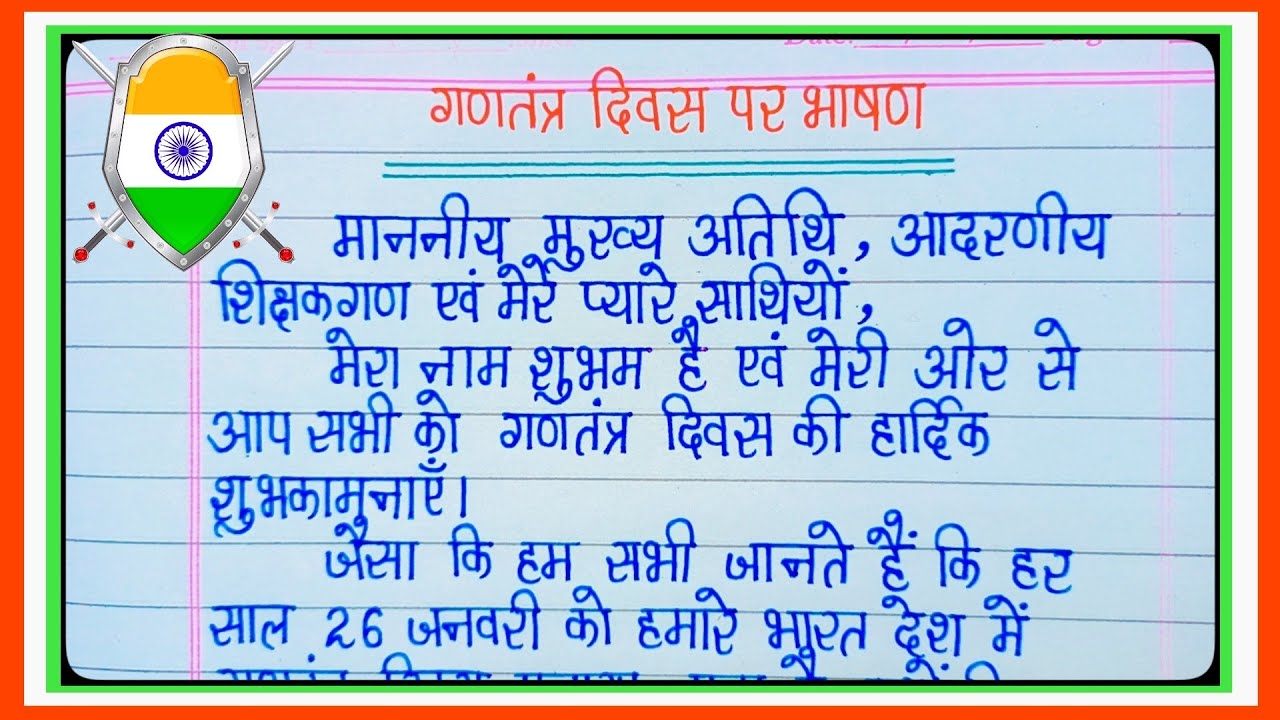 Date:
गणतंत्र दिवस पर भाषण
माननीय मुख्य अतिथि, आदरणीय
शिक्षकगण एवं मेरे प्यारे साथियों,
मेरा नाम शुभम है एवं मेरी ओर से
आप सभी को गणतंत्र दिवस की हार्दिक
शुभकामनाएँ।
जैसा कि हम सभी जानते हैं कि हर
साल 26 जनवरी को हमारे भारत देश में